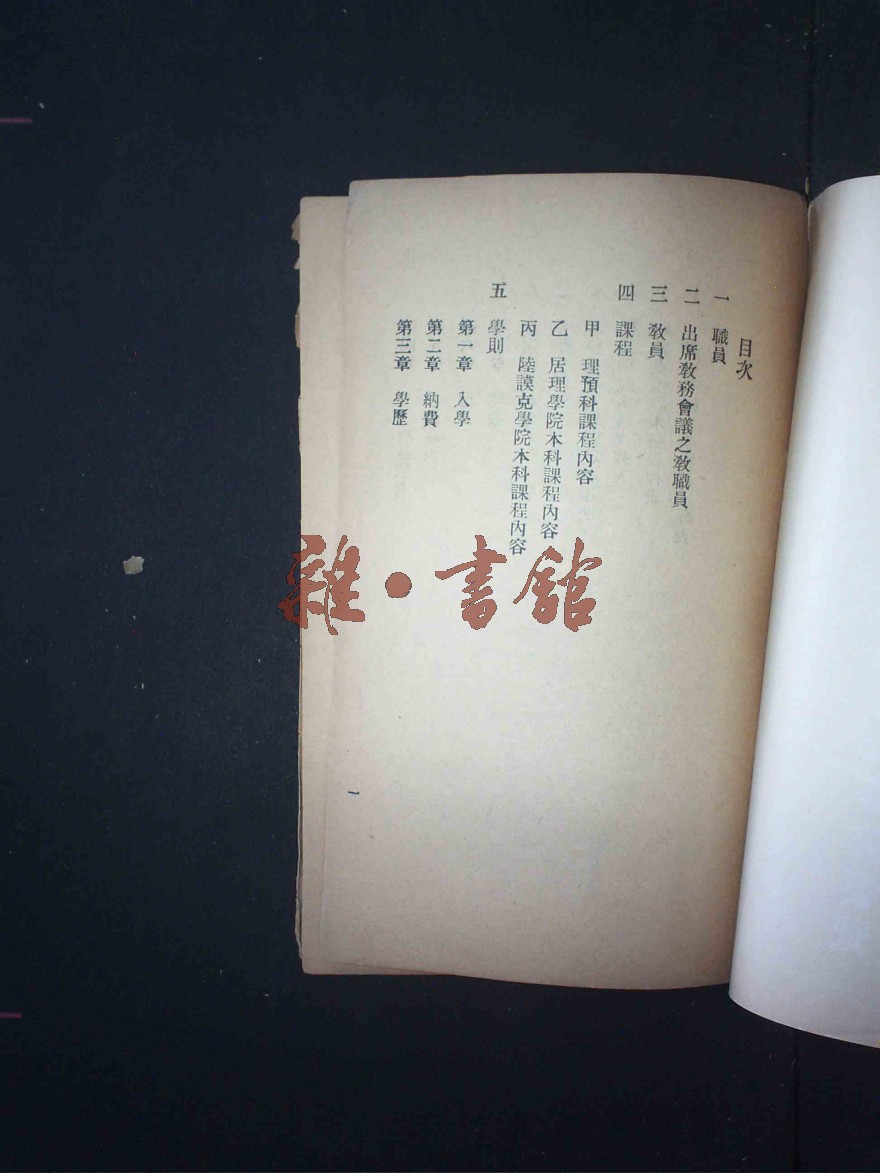 目次
一 職員
二 出席敎務會議之敎職員
三 敎員
四 課程
甲 理預科課程內容
乙 居理學院本科課程內容
丙 陸謨克學院本科課程內容
五 學則
第一章 入學
第二章 納費
第三章 學歷
一
雜·書館